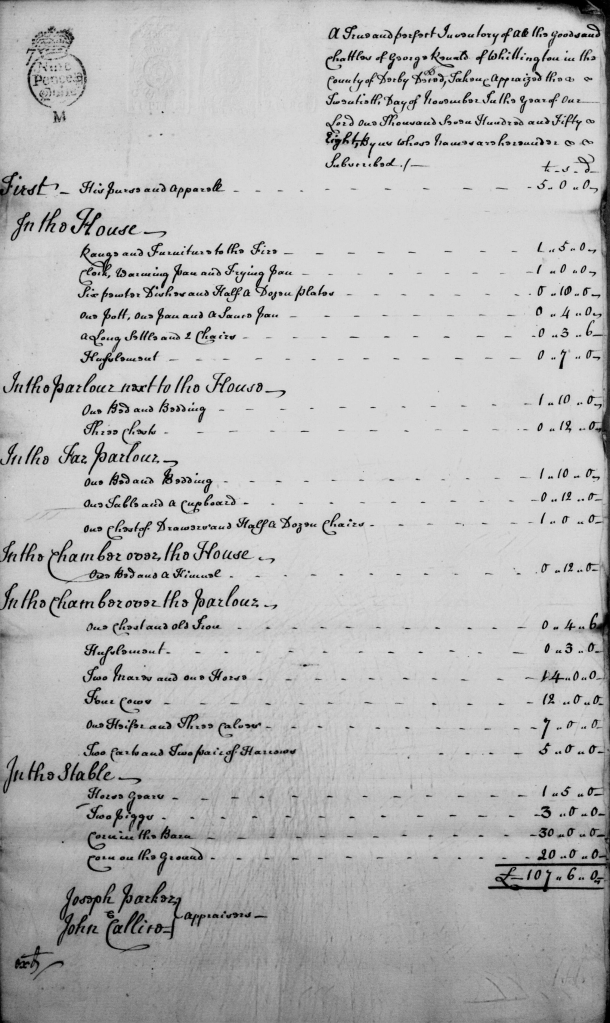 Nine
Pence
M
A True and perfect Inventory of All the Goods and
Chattles of George Renald of Whittington in the
County of Derby Deced, Taken & Appraized the
Twentieth Day of November In the Year of Our
Lord One Thousand Seven Hundred and Fifty
Eight, By us whose Names are hereunder
Subscribed /
£ - s - d
First - His purse and Apparell - 5 .. 0 .. 0
In the House
Range and Furniture to the Fire - 1 .. 5 .. 0
Clock, Warming Pan and Frying Pan - 1 .. 0 .. 0
Six pewter Dishes and Half A Dozen plates - 0 .. 10 .. 0
One Pott, One Pan and A Sauce Pan - 0 .. 4 .. 0
A Long Settle and 2 Chairs - 0 .. 3 .. 6
Husslement - 0 .. 7 .. 0
In the Parlour next to the House
One Bed and Bedding - 1 .. 10 .. 0
Three Chests - 0 .. 12 .. 0
In the Far Parlour
One Bed and Bedding - 1 .. 10 .. 0
One Table and A Cupboard - 0 .. 12 .. 0
One Chest of Drawers and Half A Dozen Chairs - 1 .. 0 .. 0
In the Chamber over the House
One Bed and A Kimnel - 0 .. 12 .. 0
In the Chamber over the Parlour
One Chest and old Iron - 0 .. 4 .. 6
Husslement - 0 .. 3 .. 0
Two Mares and one Horse - 14 .. 0 .. 0
Four Cows - 12 .. 0 .. 0
One Heifer and Three Calves - 7 .. 0 .. 0
Two Carts and Two pair of Harrows 5 .. 0 .. 0
In the Stable
Horse Gears - 1 .. 5 .. 0
Two piggs - 3 .. 0 .. 0
Corn in the Barn - 30 .. 0 .. 0
Corn on the Ground - 20 .. 0 .. 0
£ - 107 .. 6 .. 0
Joseph Parker
&
Appraisers
John
ext